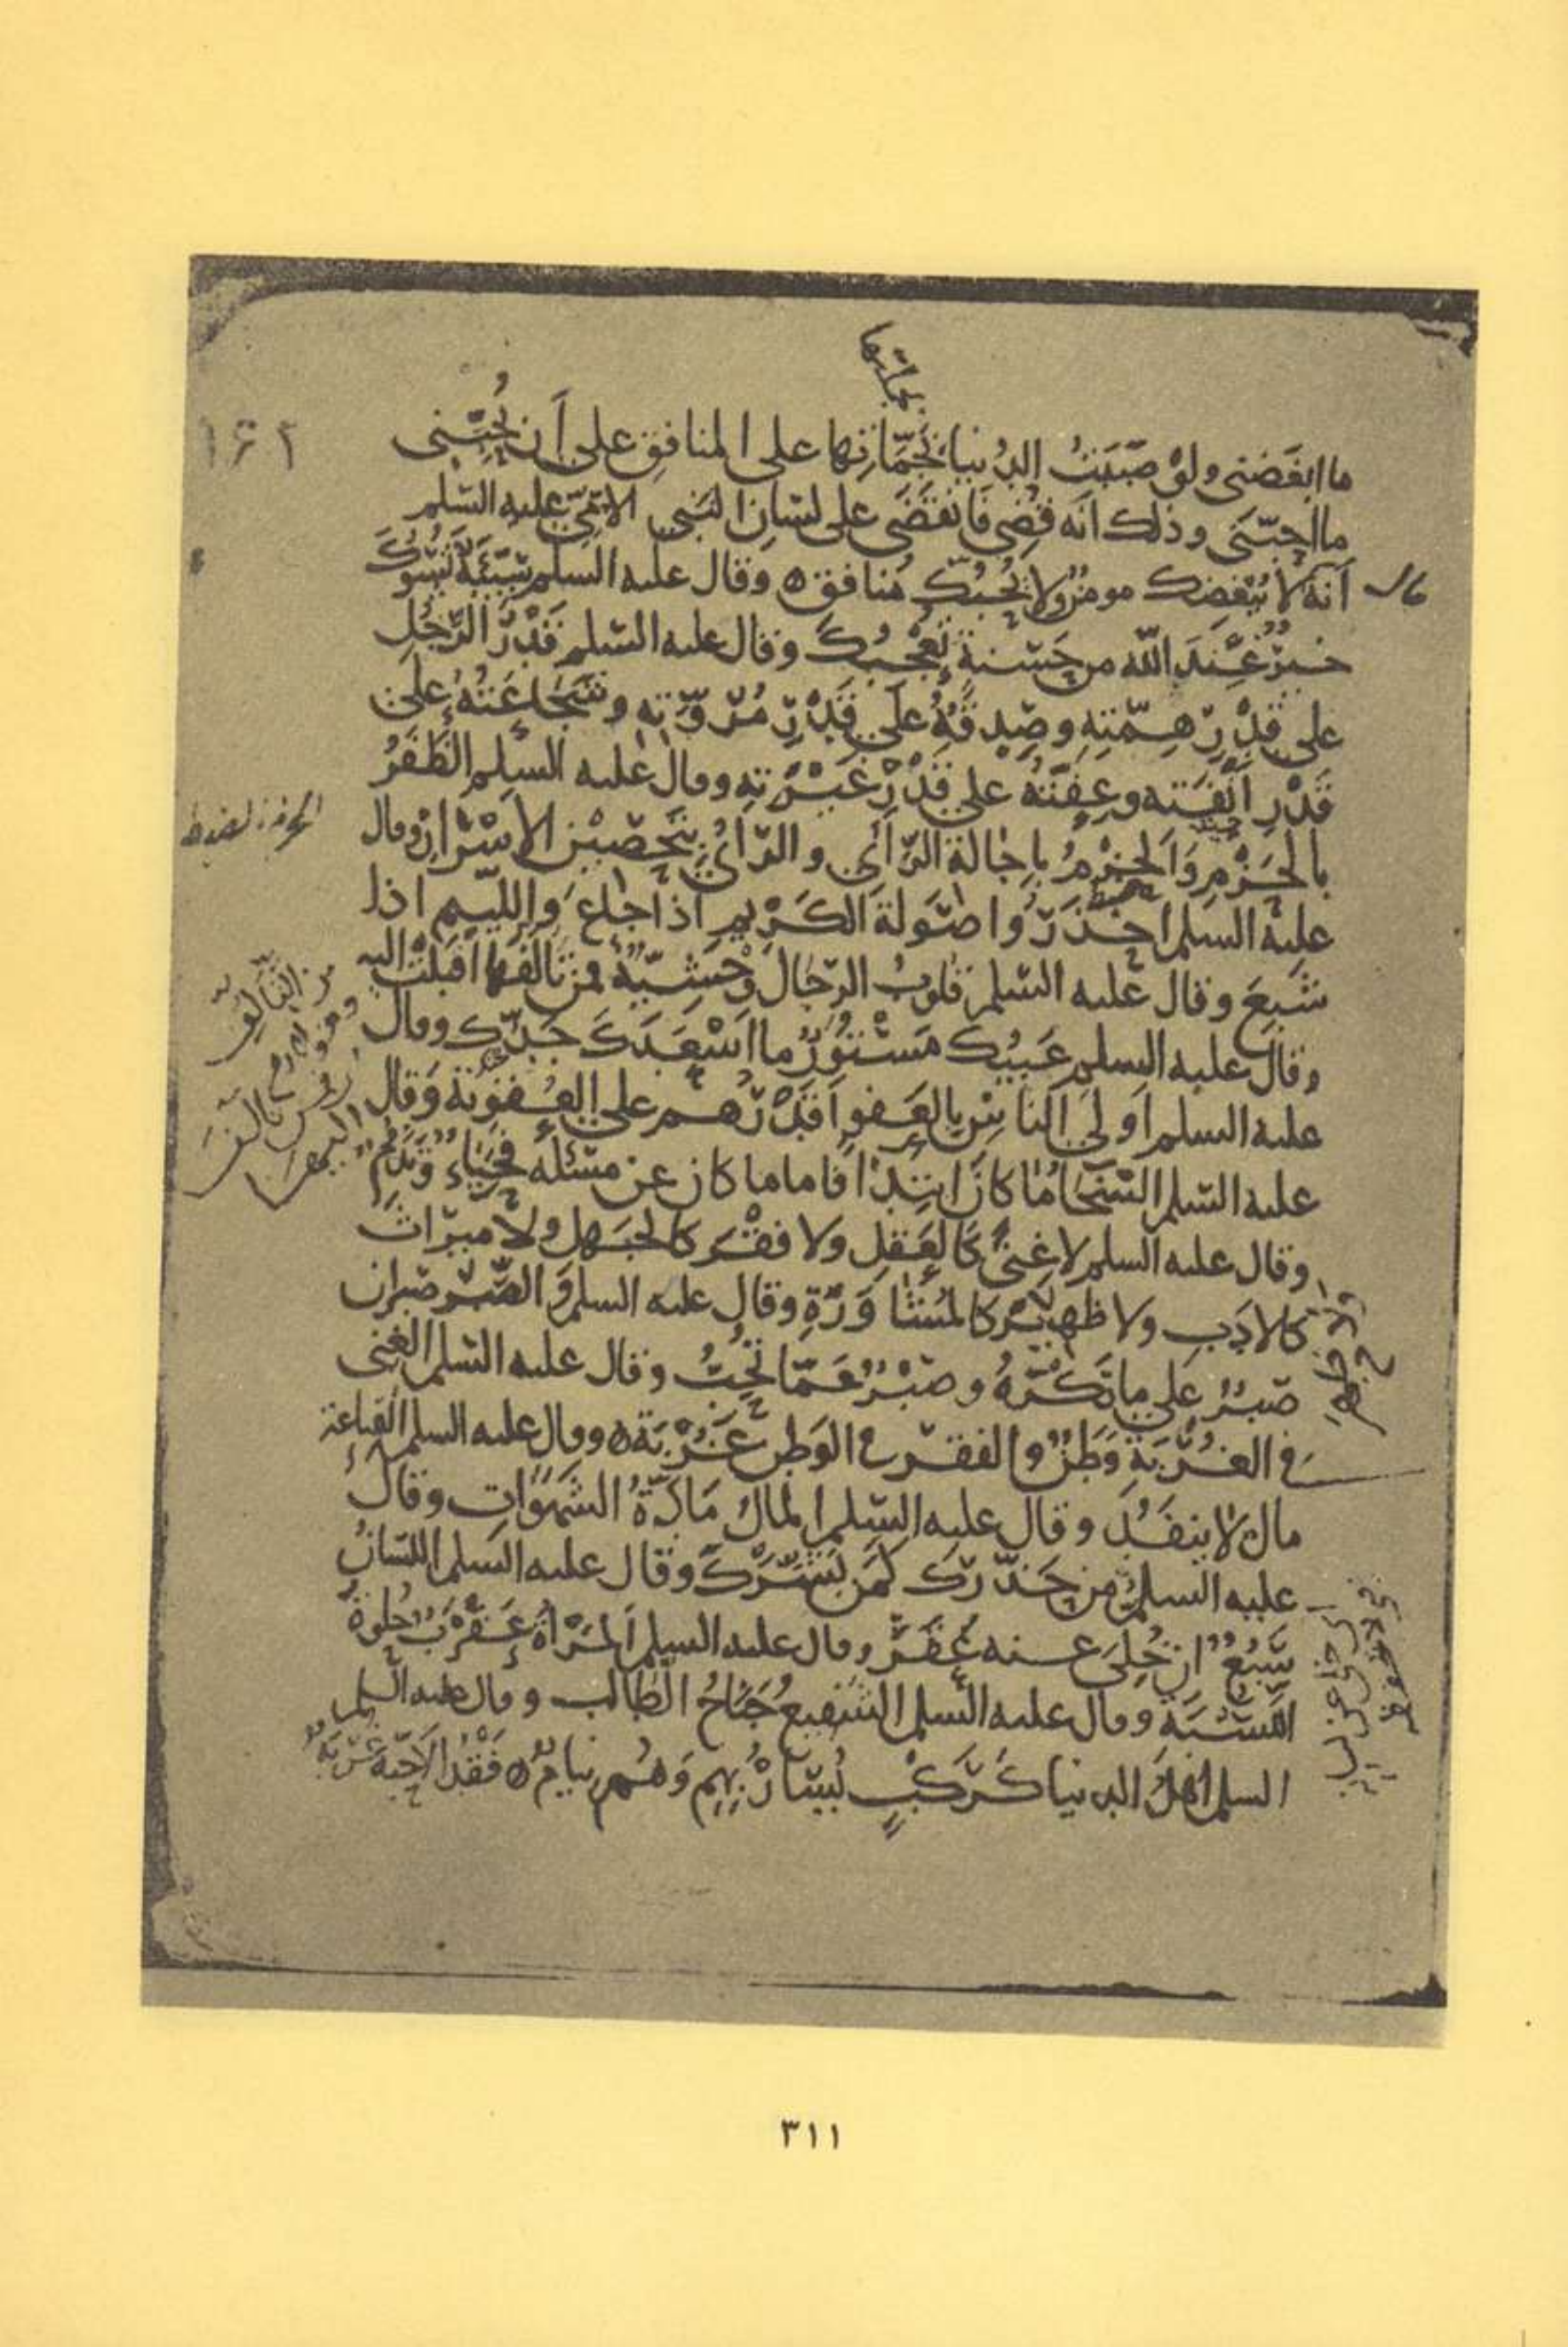 بجملتها
ما ابغضنى ولوْ صَبَبَتُ الدُنيا بَجَمّاتِها على المنافِق على أَن يُحِبّنى
ما احبّنى وذلك انّه قُضِى فانقضَى على لسَانِ النبى الامّىّ عليه السّلم
أنّهُ لا يُبْغِضك مومنٌ ولا يُحبُّك مُنافق ٥ وقال عليه السلم سَيّئَةٌ تَسُوكَ
خيرٌ عِندَ الله من حَسَنةٍ تُعْجبُك وقال عليه السّلم قَدْرُ الرّجُلِ
على قَدْرِ هِمّتِهِ وصِدقُهُ عَلَى قَدْرِ مُرُوَّتِهِ وشَجَاعَتُهُ على
قَدْرِ أَنَفَتِه وعِفّتُهُ على قَدْرِ غَيْرَتِهِ وقال عليه السلم الظَفَرُ
بالحَزْمِ وَالحَزْمُ باِجالة الرّأىِ والرّأىُ بتَحصِيْنِ الأسْرَارِ وقال
عليه السلم احذَرُوا صَوْلةَ الكَرْيمِ اذا جاعَ واللّئيم اذا
شَبِعَ وقال عليه السّلم قلوبُ الرّجال وَحْشِيّةٌ فمن تألّفها اقبلتْ اليه
وقال عليه السلم عَيبُك مَسْتُورٌ ما اَسْعَدَكَ جَدُّك وقال
عليه السلم اَولَى الناسِ بالعَفوِ اَقدَرُهُم على العُقوبَة وَقال
عليه السّلم السّخَاءُ ما كانَ ابتِدَاً فاما ما كان عن مسْئَلَه فحَيَاءٌ وَتَذَمُّمٌ
وقال عليه السلم لاغِنىً كَالعَقلِ ولا فقْر كالجَهل ولا ميرَاث
كالادَبِ ولا ظهيْر كالمُشَاوَرَةِ وقال عليه السلم الصَّبْر صَبران
صَبرٌ عَلى ما تَكرَهُ وصَبْرٌ عَمّا تُحِبُّ وقال عليه السّلم الغِنى
فى الغُرْبَةِ وَطَنٌ والفقرُ فى الوَطنِ غُرْبَة ٥ وقال عليه السلم القناعة
مال لاينفَدُ وقال عليه السّلم المالُ مَادّةُ الشَهَوَاتِ وقال
عليه السلم من حَذّرَكَ كَمَن بَشّرَكَ وقال عليه السلم اللسَانُ
سَبُعٌ اِن خُلِىَ عنه عَقَرَ وقال عليه السلم المَرْأةُ عَقْرَبٌ حُلوَةُ
اللَّسْبَة وقال عليه السّلم الشفيعُ جَنَاحُ الطالب وقال عليه السلم
السلم اَهلُ الدنيا كَرَكبٍ يُسَارُ بِهِم وَهُم نيامٌ ٥ فَقْدُ الاَحِبّه غُرْبَةٌ
١٦٢
الحزم: الضبط
من التألّف
٣١١